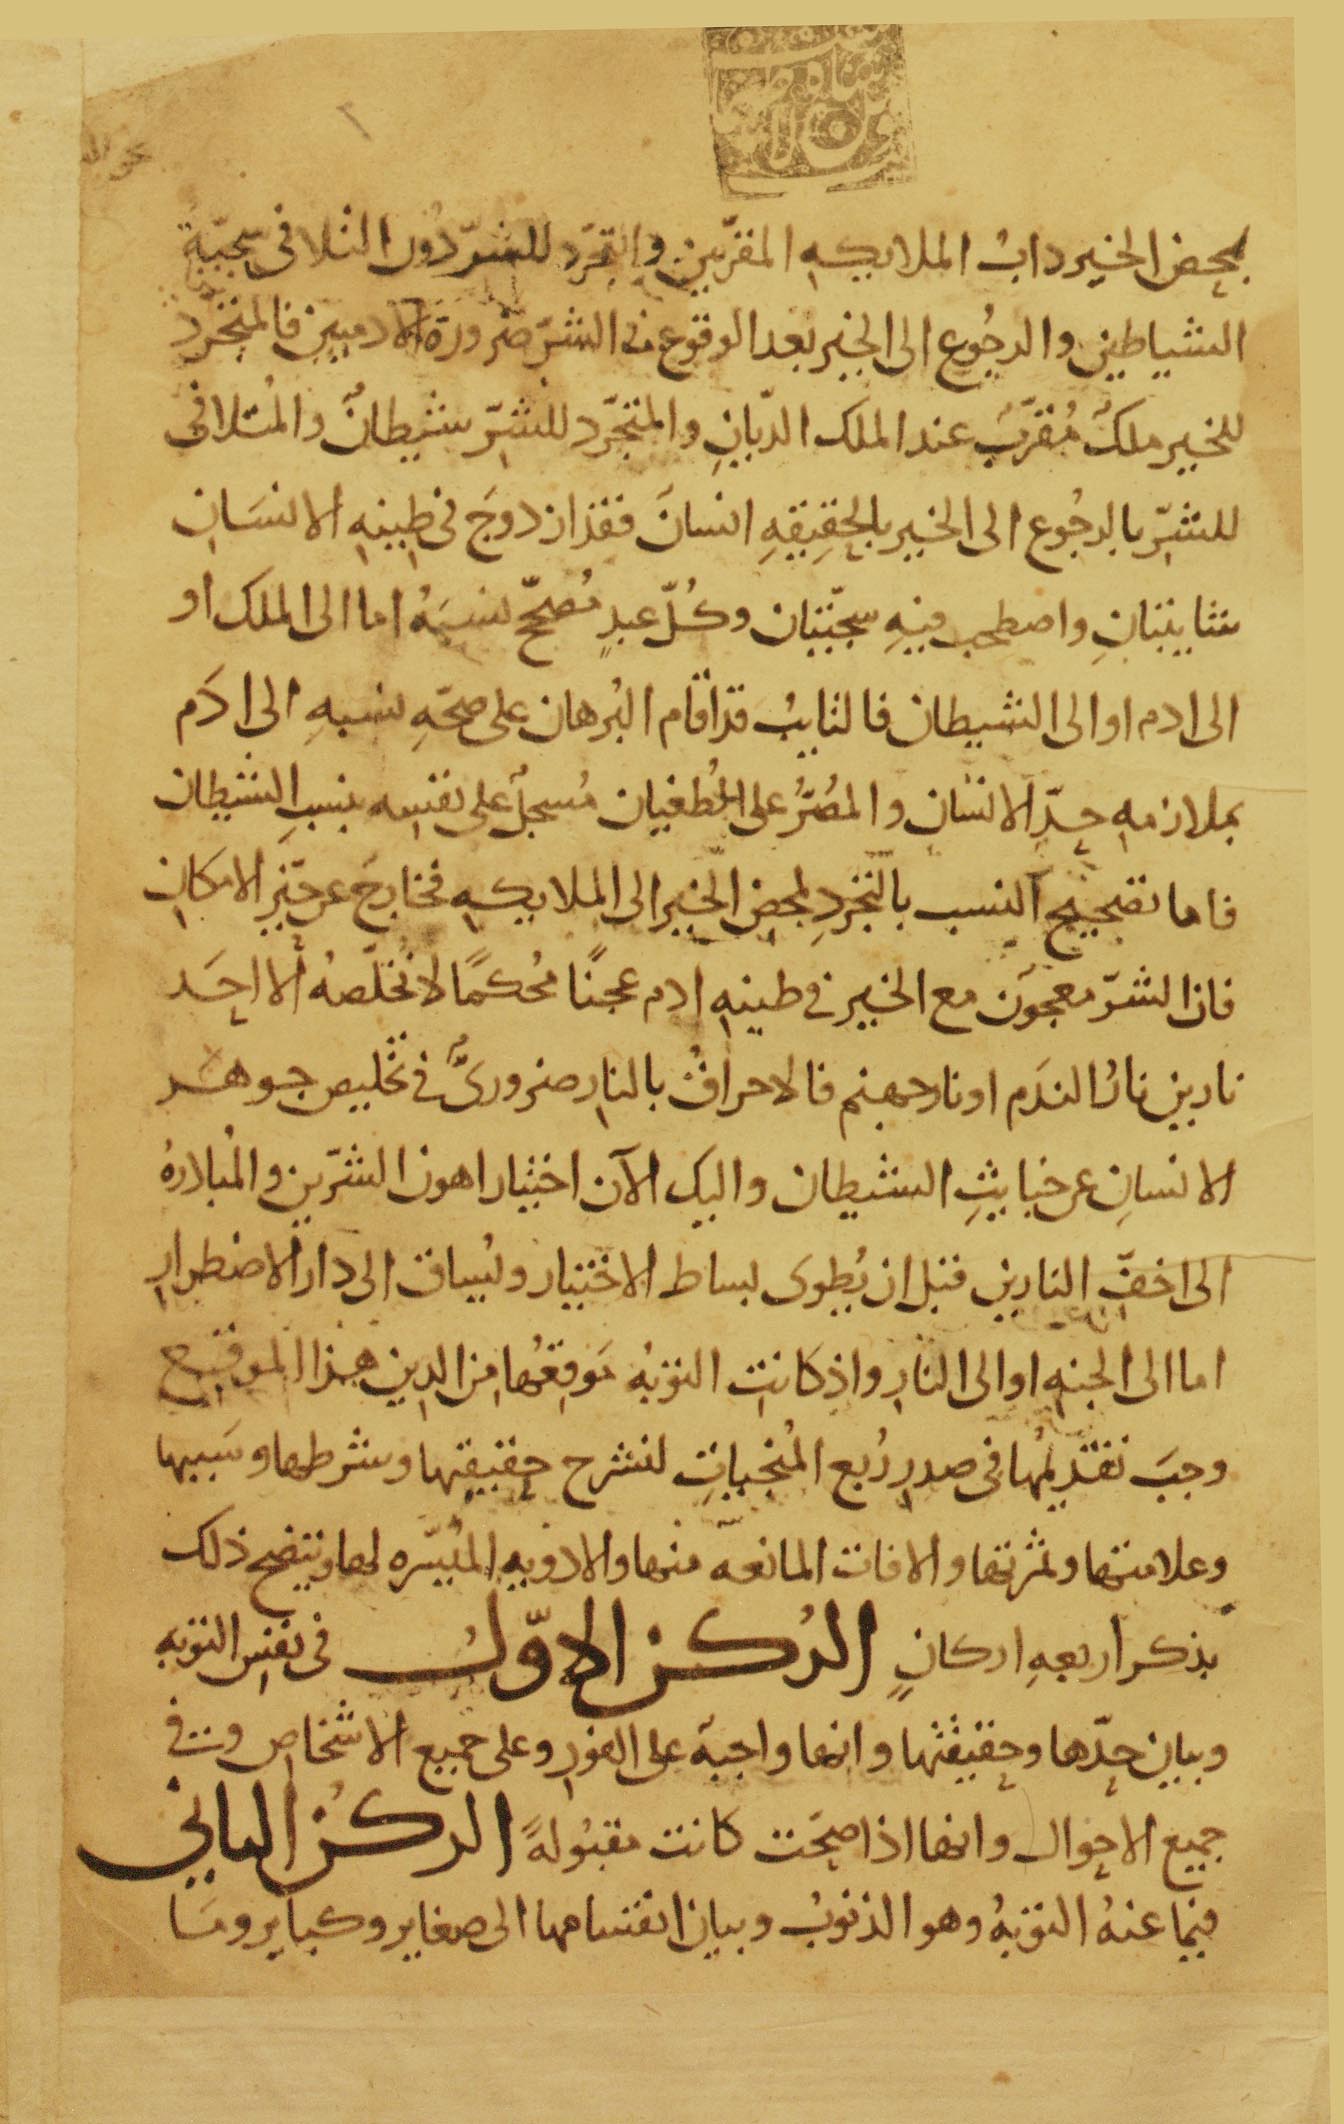 لمحض الخير داب الملايكه المقرّبين والتجرّد للشرّ دُون التلافى سجيّة
الشياطين والرجُوع الى الخير بعد الوقوع فى الشرّ ضرورة الادميين فالمتجرّد
للخير ملكٌ مُقرّبٌ عند الملك الديّانِ والمتجّرد للشرّ شيطانٌ والمُتلافى
للشرّ بالرجُوع الى الخير بالحقِيقهِ انسانٌ فقد ازدوجَ فى طينه الانسَان
شايبتانِ واصطحب فيهِ سجيّتان وكُلّ عبدٍ مُصحّح نسبَهُ اما الى الملك او
الى ادم او الى الشيطان فالتايبُ قد اقام البُرهان على صحّهِ نسبهِ الى ادَم
بملازمهِ حدِّ الانسَانِ والمصُرُّ على الطُغيان مُسجلٌ على نفسه بنسبِ الشيطان
فاما تصحيح النسب بالتجرّدِ لمحض الخير الى الملايكه فخارجٌ عن حيّز الامكان
فان الشرّ معجوُن مع الخير فى طينه ادم عجنًا مُحكمًا لا تُخلّصهُ الا احَد
نارين نارُ الندَم او نار جهنم فالاحراقُ بالنار ضرورىٌّ فى تخليص جوهَر
الانسانِ عن خبايثِ الشيطان واليك الآن اختيار اهون الشرّين والمُبادرهُ
الى اخفّ النارين قبل ان يُطوى بساط الاختيار ويُساق الى دار الاضطرارِ
اما الى الجنه او الى النارِ واذ كانت التوبهُ مَوقعُها من الدين هذا الموقع
وجبَ تقديمُها فى صدرِ رُبع المُنجيات لشرح حقيقتها وشرطها وسَببها
وعلامتها وثمرتها والافات المانعه منها والادويه المُيسّره لها ويتضح ذلك
بذكر اربعهِ اركانٍ الرُكن الاوّلُ فى نفس التوبه
وبيان حدّها وحقيقتها وانها واجبة على الفورِ وعلى جميع الاشخاص وفى
جميع الاحوال وانها اذا صحَت كانت مقبُولةً الركنُ الثانى
فيما عنهُ التوبهُ وهو الذنوبُ وبيان انقسامها الى صغاير وكباير ومَا